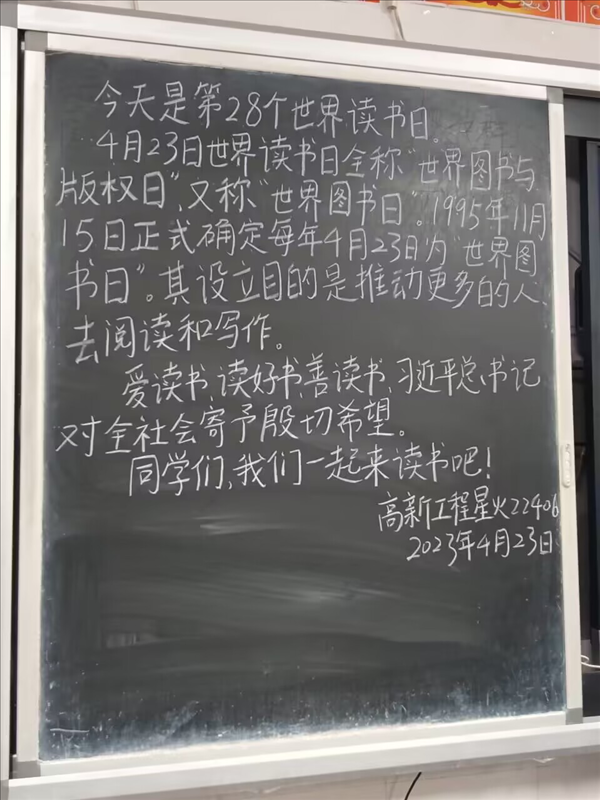 今天是第28个世界读书日。
4月23日世界读书日全称"世界图书与
版权日",又称"世界图书日"。1995年11月
15日正式确定每年4月23日为"世界图
书日"。其设立目的是推动更多的人
去阅读和写作。
爱读书、读好书、善读书,习近平总书记
对全社会寄予殷切希望。
同学们,我们一起来读书吧!
高新工程星火22406
2023年4月23日